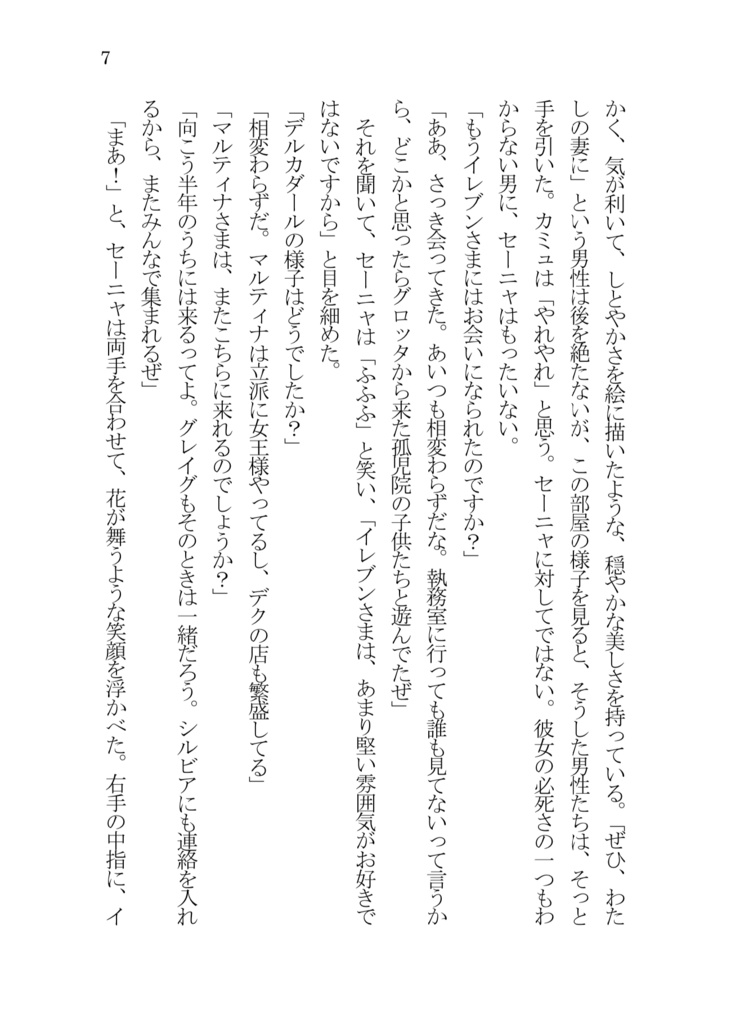 7
かく、気が利いて、しとやかさを絵に描いたような、穏やかな美しさを持っている。「ぜひ、わた
しの妻に」という男性は後を絶たないが、この部屋の様子を見ると、そうした男性たちは、そっと
手を引いた。カミュは「やれやれ」と思う。セーニャに対してではない。彼女の必死さの一つもわ
からない男に、セーニャはもったいない。
「もうイレブンさまにはお会いになられたのですか？」
「ああ、さっき会ってきた。あいつも相変わらずだな。執務室に行っても誰も見てないって言うか
ら、どこかと思ったらグロッタから来た孤児院の子供たちと遊んでたぜ」
それを聞いて、セーニャは「ふふふ」と笑い、「イレブンさまは、あまり堅い雰囲気がお好きで
はないですから」と目を細めた。
「デルカダールの様子はどうでしたか？」
「相変わらずだ。マルティナは立派に女王様やってるし、デクの店も繁盛してる」
「マルティナさまは、またこちらに来れるのでしょうか？」
「向こう半年のうちには来るってよ。グレイグもそのときは一緒だろう。シルビアにも連絡を入れ
るから、またみんなで集まれるぜ」
「まあ！」と、セーニャは両手を合わせて、花が舞うような笑顔を浮かべた。右手の中指に、イ